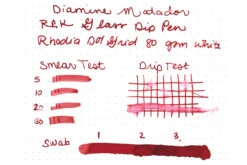 Diamine Matador
R&K Glass Dip Pen
Rhodia Dot Grid 80 gpm White
Smear Test
Drip Test
5
10
20
30
1 2 3.
Swab